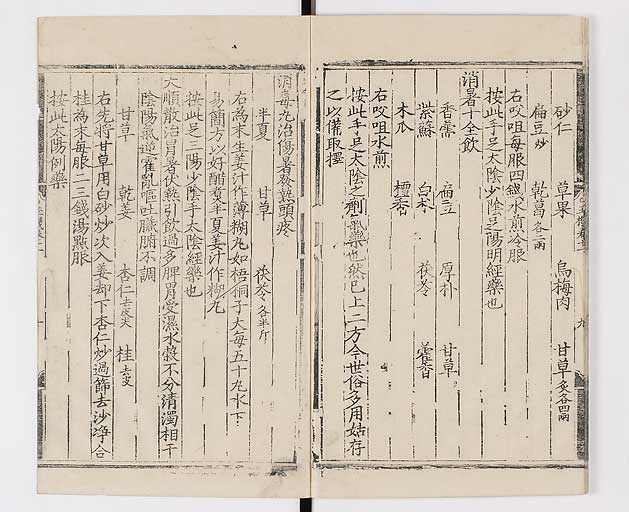 砂仁 草果 烏梅肉 甘草炙各四兩
扁豆炒 乾葛各二兩
右㕮咀每服四錢水煎冷服
按此手足太陰少陰足陽明經藥也
消暑十全飲
香薷 扁豆 厚朴 甘草
紫蘇 白朮 茯苓 藿香
木瓜 檀香
右㕮咀水煎
按此手足太陰之劑氣藥也然已上二方今世俗多用姑存
之以備取擇
消毒丸治傷暑發熱頭疼
半夏 甘草 茯苓各半斤
右為末生姜汁作薄糊丸如梧桐子大每五十丸水下
易簡方以好醋煑半夏姜汁作糊丸
按此足三陽少陰手太陰經藥也
大順散治冒暑伏熱引飲過多脾胃受濕水穀不分清濁相干
陰陽氣逆霍亂嘔吐臟腑不調
甘草 乾姜 杏仁去皮尖 桂去皮
右先將甘草用白砂炒次入姜却下杏仁炒過篩去沙净合
桂為末每服二三錢湯點服
按此太陽例藥